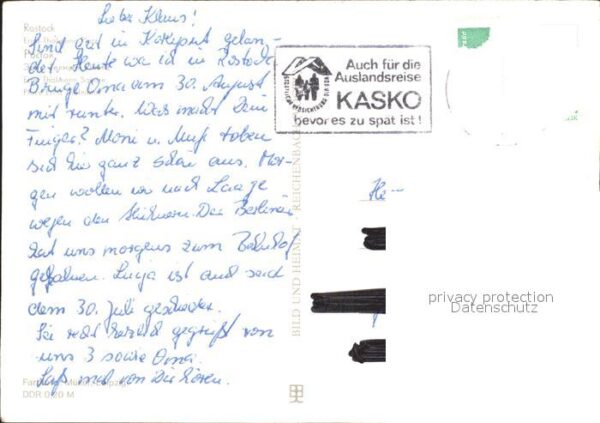 Lieber Klaus!
Sind gut in gelan-
det. Heute war ich in Rostock
Bringe Oma am 30. August
mit runter. Was macht Dein
Finger? Moni u. toben
sich hier ganz schön aus. Mor-
gen wollen wir nach Laage
wegen den Der Berliner
hat uns morgens zum Bahnhof
gefahren. ist auch seit
dem 30. Juli geschieden.
Sei recht herzlich gegrüßt von
uns 3 sowie Oma.
Laß mal von Dir hören.
Rostock
DDR 0,20 M
BILD UND HEIMAT REICHENBACH
STAATLICHE VERSICHERUNG DER DDR
Auch für die
Auslandsreise
KASKO
bevor es zu spät ist!
He-
privacy protection
Datenschutz